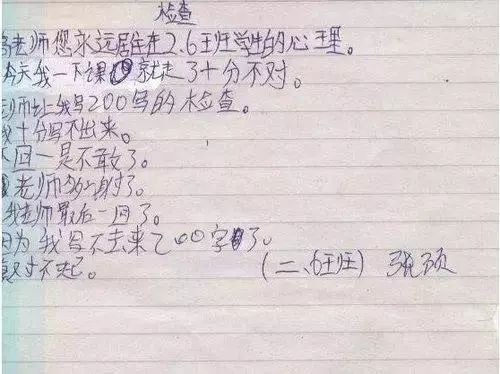 检查
老师您永远居住在2.6班学生的心里。
今天我一下课就走了十分不对。
老师让我写200字的检查。
我十分写不出来。
下回一是不敢了。
老师
我老师最后一回了。
因为我写不去来200字了。
对不起。
(二、6班) 张